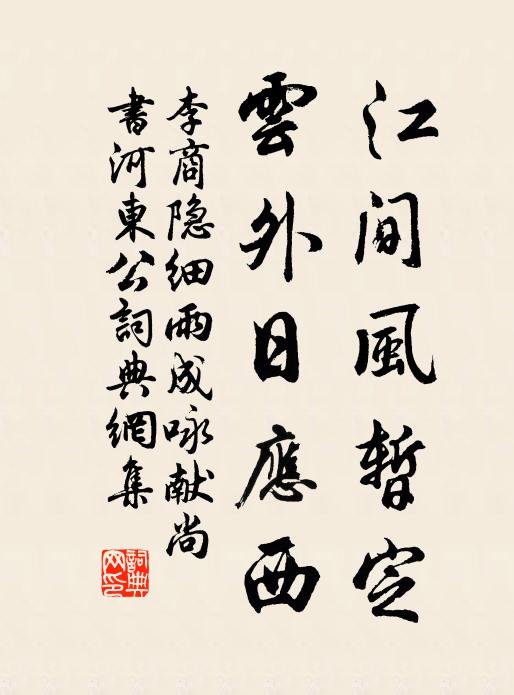 江间風暫定
雲外日應西
李商隐细雨成咏献尚
書河東公詞典網集
詞典网印